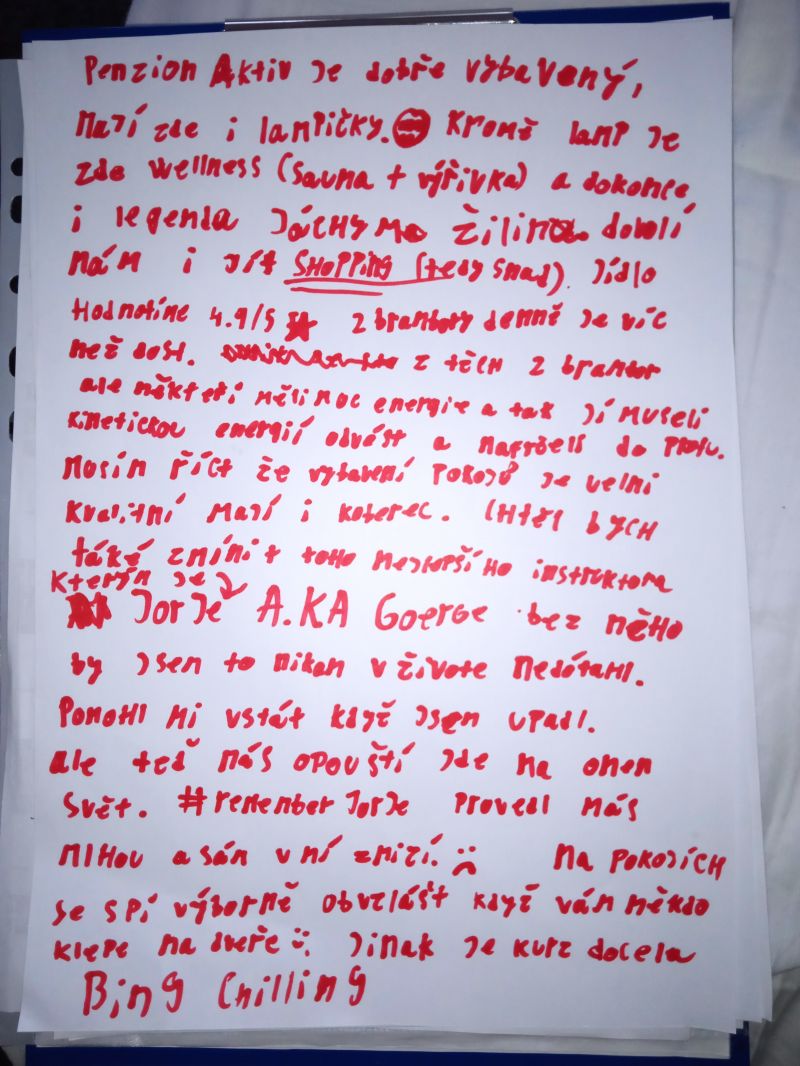 Penzion Aktiv je dobře vybavený,
mají zde i lampičky. Kromě lamp je
zde wellness (sauna + výřivka) a dokonce
i legenda JÁCHYM Žilina dovolí
nám i jít SHOPPING (tedy snad). Jídlo
Hodnotíme 4.9/5 2 brambory denně je víc
než dost. z těch 2 brambor
ale někteří měli moc energie a tak jí museli
kinetickou energií odvést a naprčeli do
Mosím říct že vybavení pokojů je velmi
kvalitní mají i koberec. Chtěl bych
také zmínit toho nejlepšího instruktora
kterým je
JorJe A.KA Goerge bez něho
by jsem to nikam v živote nedótahl.
Pomohl mi vstát když jsem upadl.
ale teď nás opouští jde na onen
svět. #remember JorJe provedl nás
mlhou a sám v ní zmizí. :( Na pokojích
se spí výborně obvzlášť když vám někdo
klepe na dveře :). Jinak je kurz docela
Bing Chilling